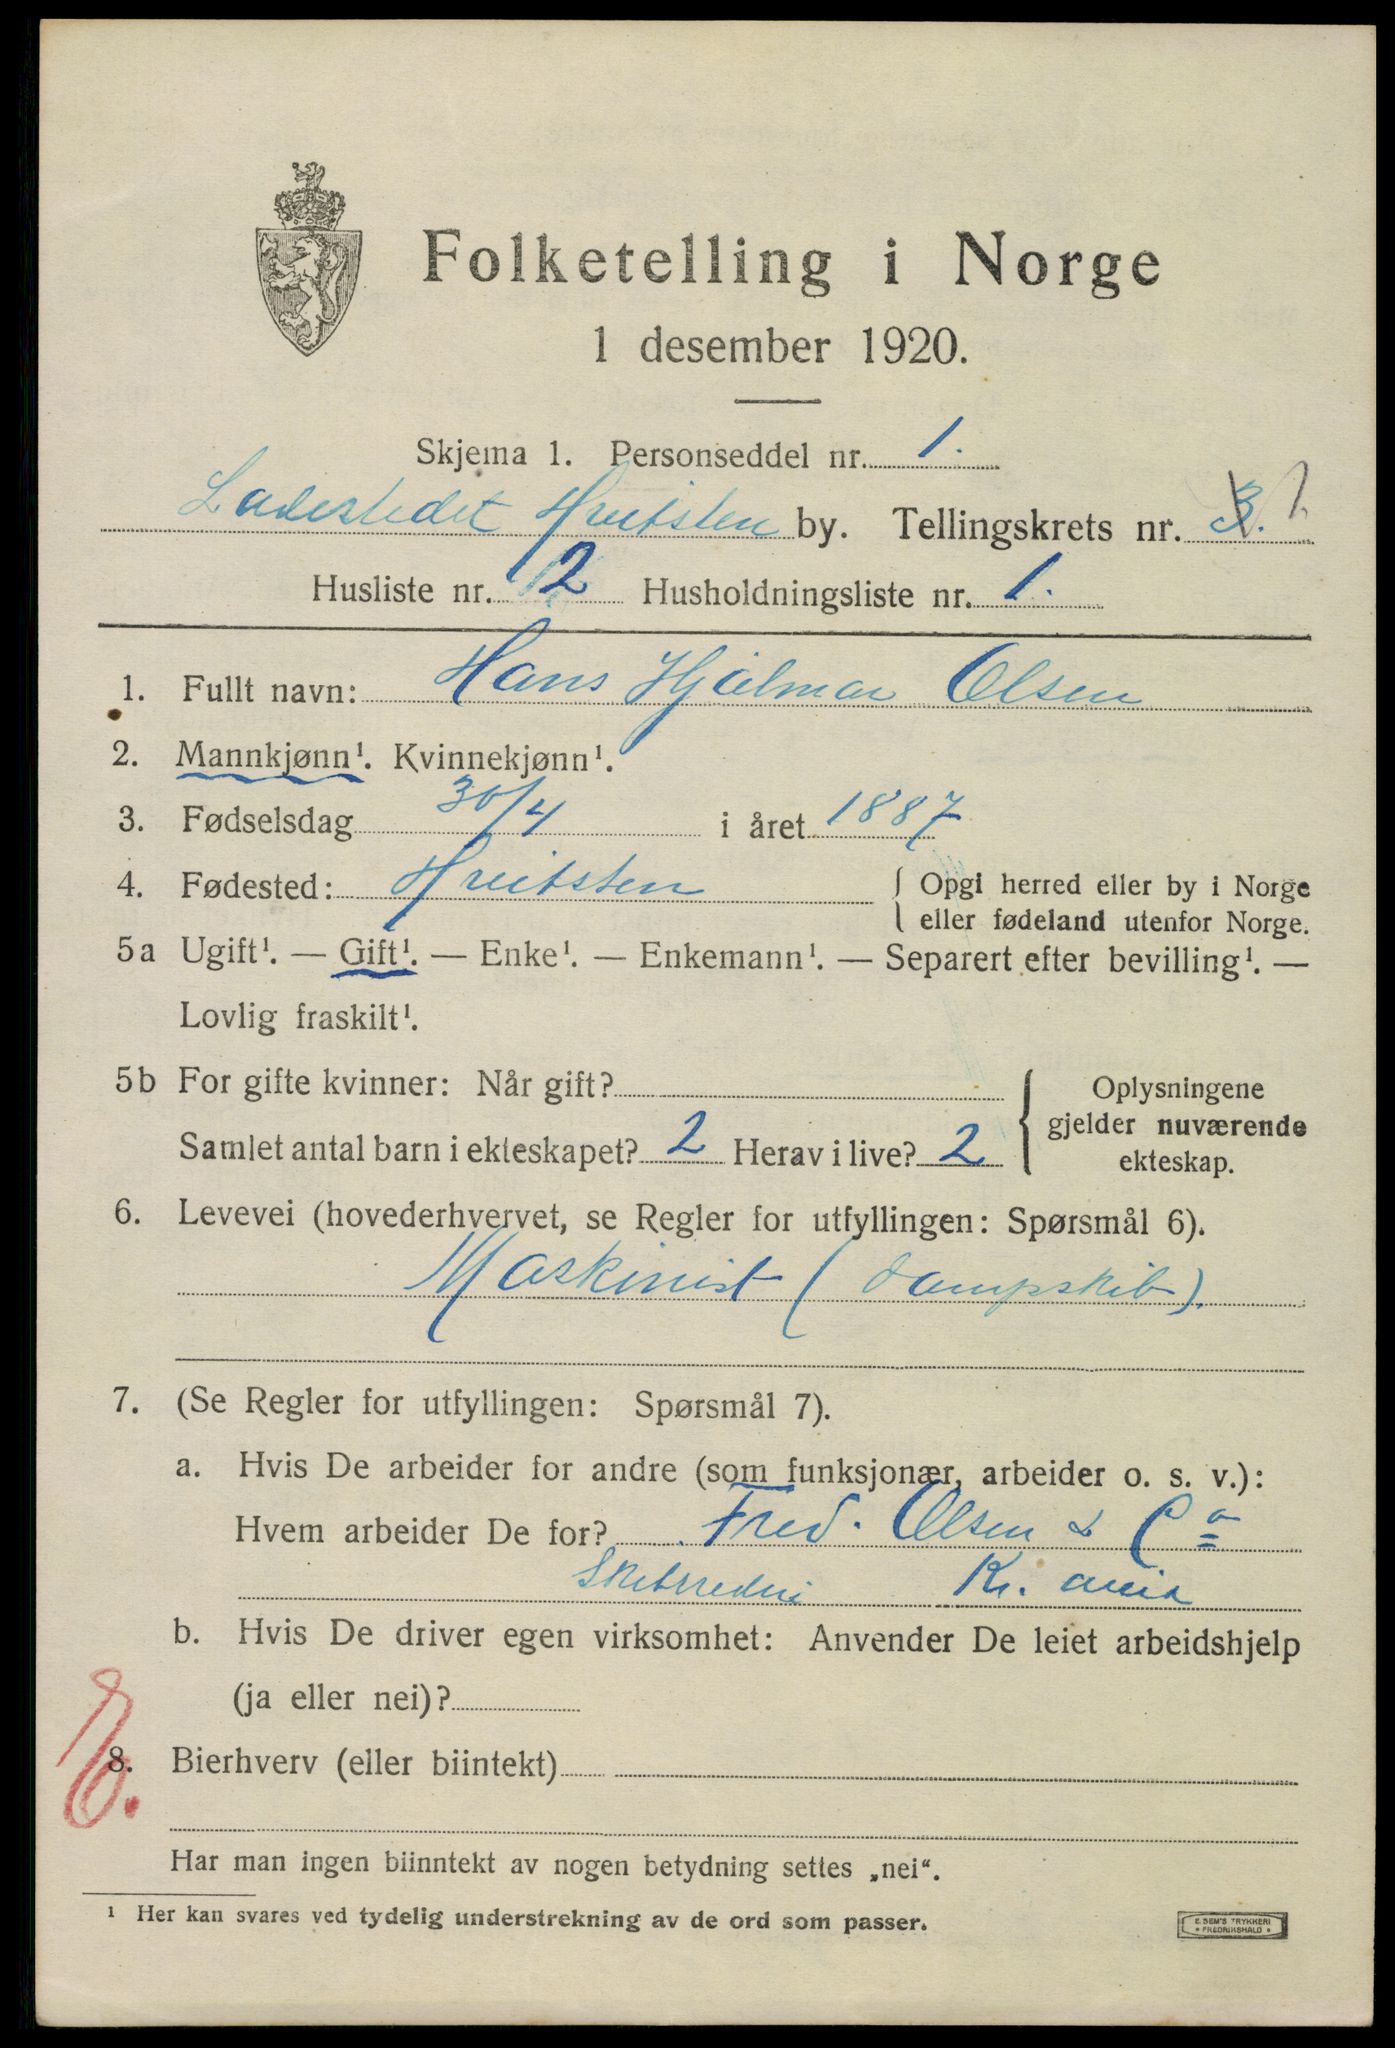 Folketelling i Norge
1 desember 1920.
Skjema 1. Personseddel nr. 1.
Ladestedet Hvitsten by. Tellingskrets nr. 3.
Husliste nr. 2 Husholdningsliste nr. 1.
1. Fullt navn: Hans Hjalmar Olsen
2. Mannkjønn¹. Kvinnekjønn¹.
3. Fødselsdag 30/4 i året 1887
4. Fødested: Hvitsten { Opgi herred eller by i Norge
eller fødeland utenfor Norge.
5a Ugift¹. — Gift¹. — Enke¹. — Enkemann¹. — Separert efter bevilling¹. —
Lovlig fraskilt¹.
5b For gifte kvinner: Når gift? { Oplysningene
Samlet antal barn i ekteskapet? 2 Herav i live? 2 gjelder nuværende
ekteskap.
6. Levevei (hovederhvervet, se Regler for utfyllingen: Spørsmål 6).
Maskinist (dampskib).
7. (Se Regler for utfyllingen: Spørsmål 7).
a. Hvis De arbeider for andre (som funksjonær, arbeider o. s. v.):
Hvem arbeider De for? Fred. Olsen & Co
Skibsrederi Kr. ania
b. Hvis De driver egen virksomhet: Anvender De leiet arbeidshjelp
(ja eller nei)?
8. Bierhverv (eller biintekt)
Har man ingen biinntekt av nogen betydning settes „nei“.
¹ Her kan svares ved tydelig understrekning av de ord som passer.
E. SEM'S TRYKKERI
• FREDRIKSHALD •